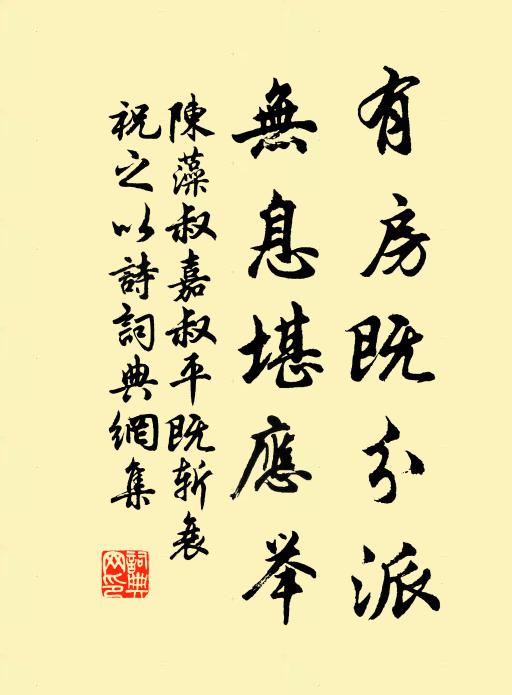 有房既分派
無息堪應举
陳藻叔嘉叔平既斩衰
祝之以詩詞典網集
詞典網印